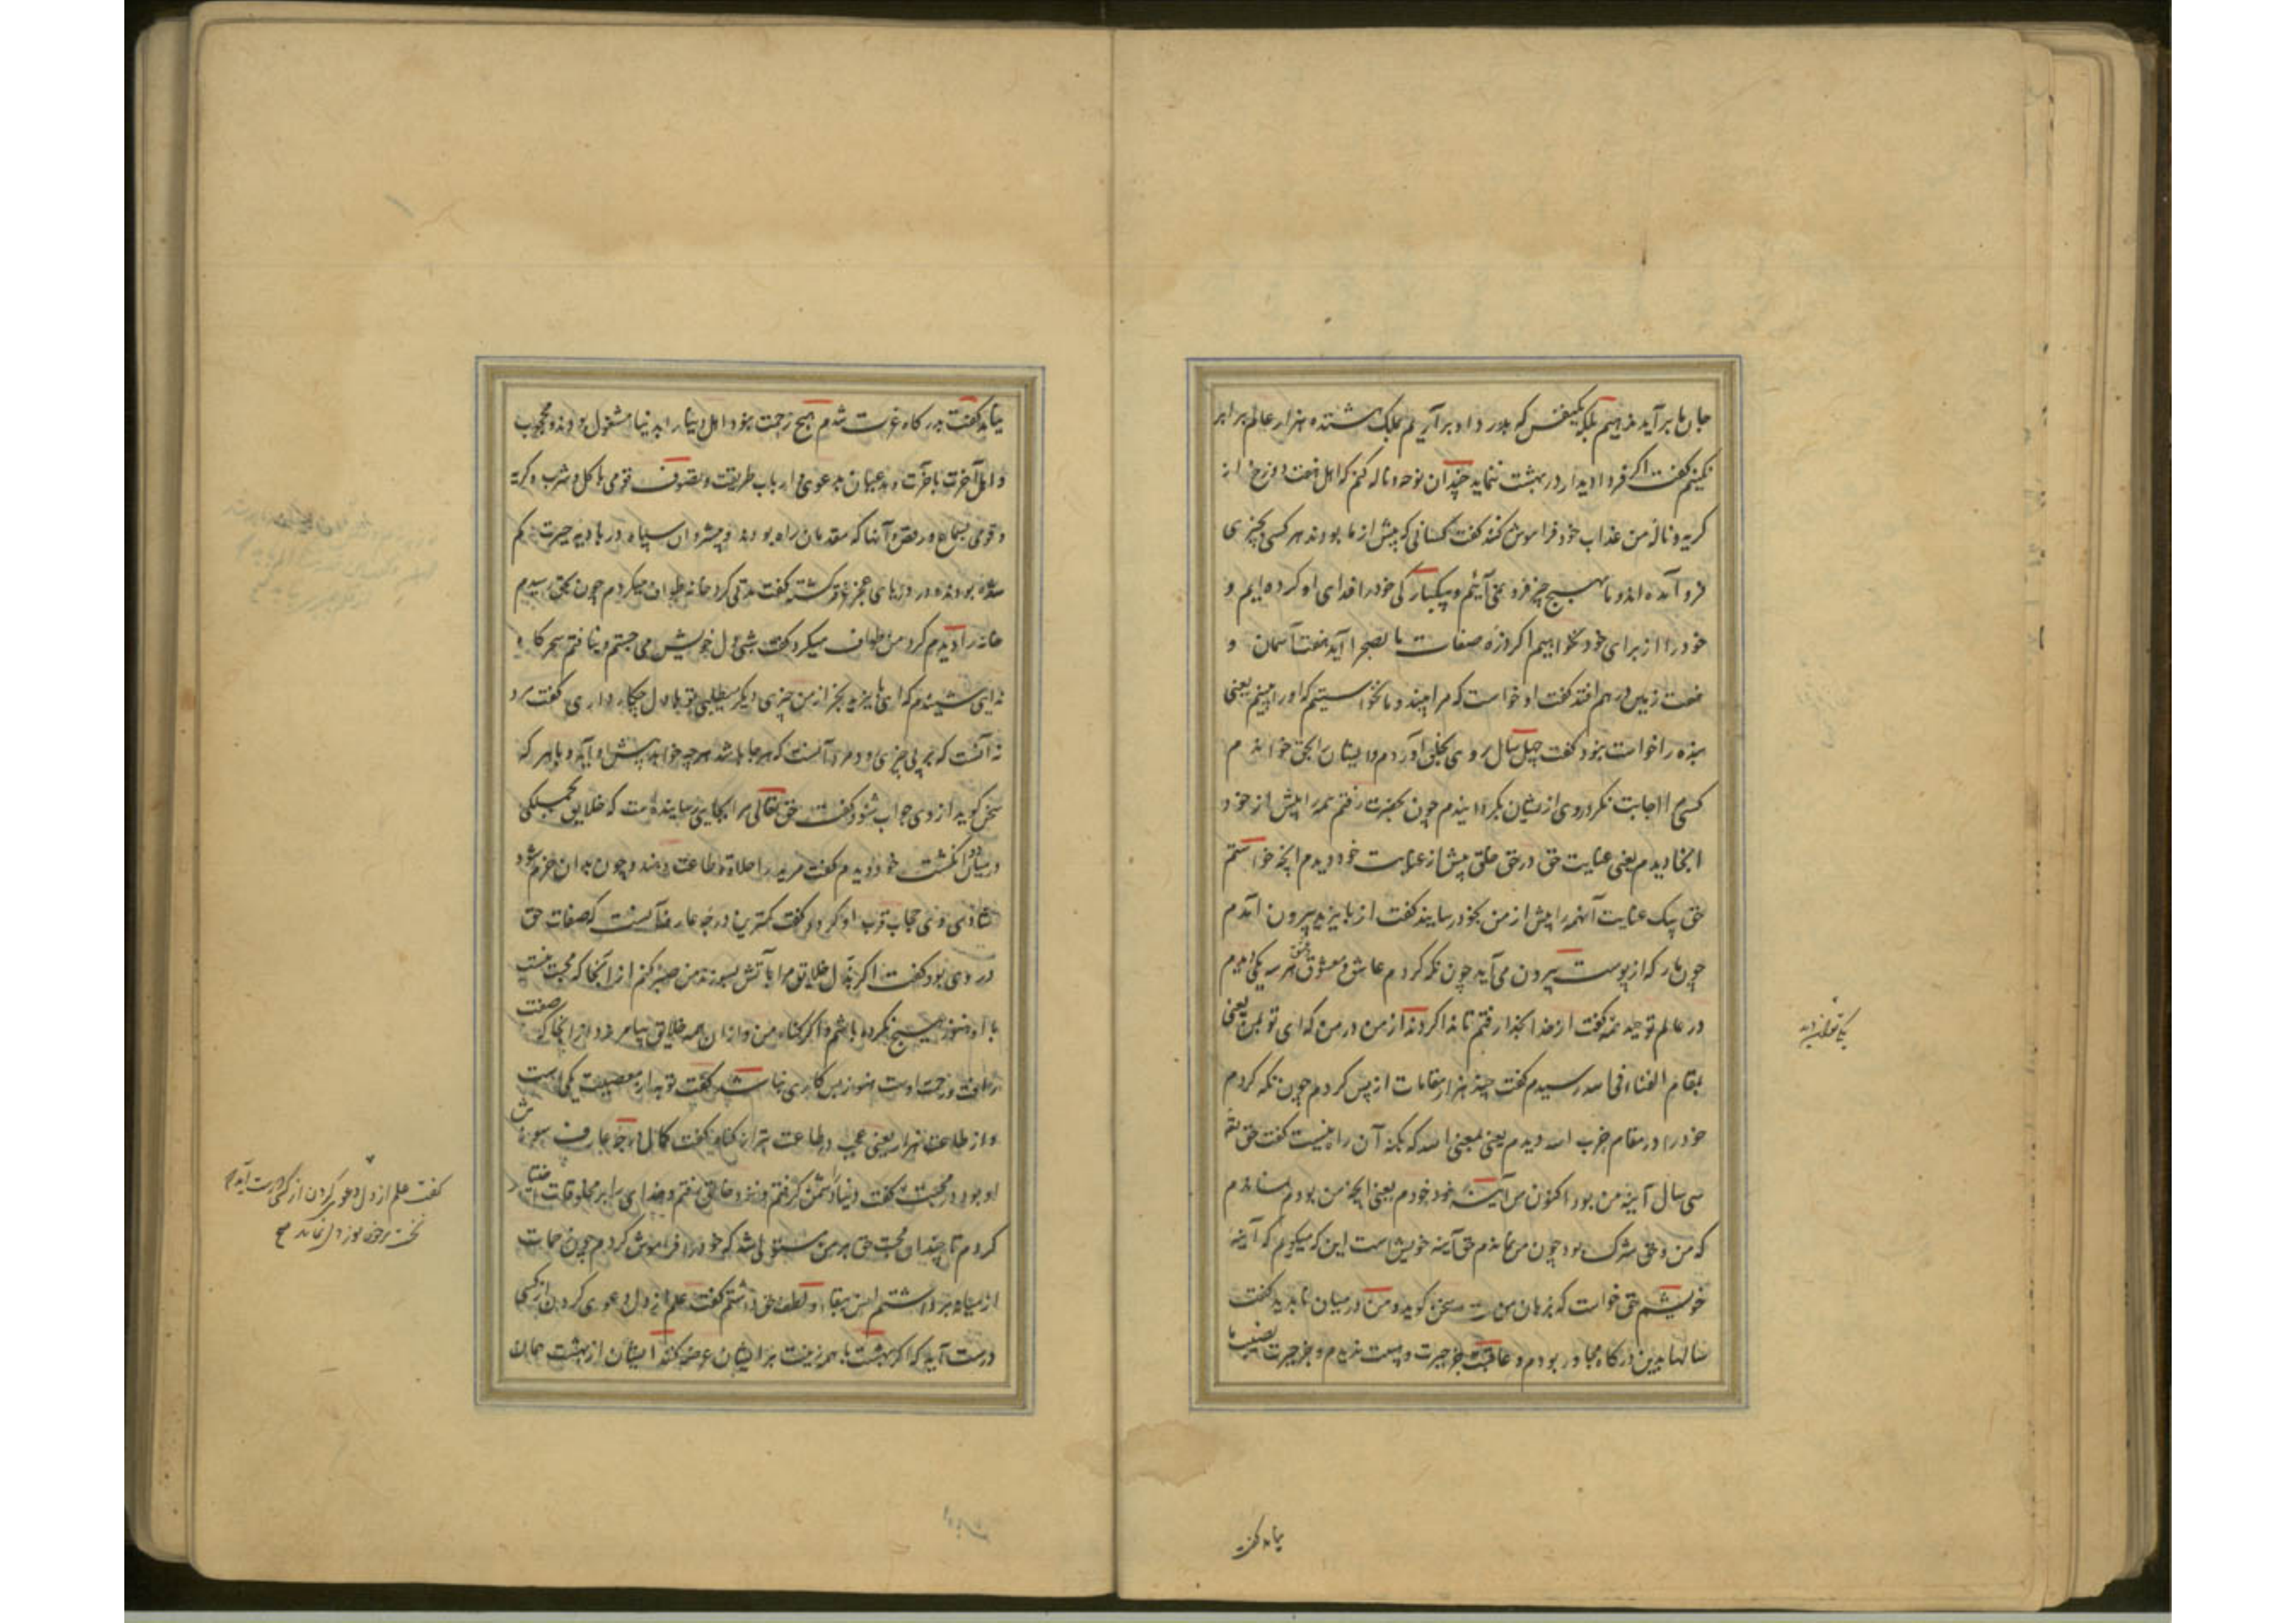 جان ها برآید ندهیم بلکه یک نفس که بدرد او برآریم بملک هشتده هزار عالم برابر
نکنیم گفت اگر فردا دیدار در بهشت ننماید چندان نوحه و ناله کنم که اهل هفت دوزخ از
کریه و ناله من عذاب خود فراموش کنند گفت کسانی که پیش از ما بودند هر کسی بچیزی
فرو آمده اند و ما بهیچ چیز فرو نمی آئیم و یکبارگی خود را فدای او کرده ایم و
خود را از برای خود نخواهیم اگر ذره صفات ما بصحرا آید هفت آسمان و
هفت زمین در هم افتد گفت او خواست که مرا بیند و ما نخواستیم که او را بینیم یعنی
بنده را خواست نبود گفت چهل سال روی بخلق آوردم و ایشان را بحق خواندم
کسی مرا اجابت نکرد روی از ایشان بگردانیدم چون بحضرت رفتم همه را پیش از خود
آنجا دیدم یعنی عنایت حق در حق خلق پیش از عنایت خود دیدم آنچه خواستم
حق بیک عنایت آن همه را پیش از من بخود رسانید گفت از بایزیدی بیرون آمدم
چون مار که از پوست بیرون می آید چون نکه کردم عاشق و معشوق و عشق هر سه یکی دیدم
در عالم توحید گفت از خدا بخدا رفتم تا ندا کردند از من در من که ای تو من یعنی
بمقام الفناء فی الله رسیدم گفت چند هزار مقامات از پس کردم چون نکه کردم
خود را در مقام حزب الله دیدم یعنی بمعنی الله که بکنه آن راه نیست گفت حق تم
سی سال آینه من بود اکنون من آینه خود خودم یعنی آنچه من بودم نماندم
که من و حق شرک بود چون من نماندم حق آینه خویش است این که میگویم که آینه
خویشم حق خواست که بزبان من سخن گوید و من در میان ناپدید گفت
سالها بدین درگاه مجاور بودم و عاقبت جز حیرت و هیبت ندیدم و بجز حیرت نصیب ما
یکی توان دید
نیامد گفت
نیامد گفت بدرگاه عزت شدم هیچ زحمت نبود اهل دنیا را بدنیا مشغول بودند و محجوب
و اهل آخرت بآخرت و مدعیان بدعوی و ارباب طریقت و تصوف قومی باکل و شرب و کریه
و قومی بسماع و رقص و آنها که مقدمان راه بودند و پیشروان سپاه در بادیه حیرت کم
شده بودند و در دریای عجز غرق گشته گفت مدتی کرد خانه طواف میکردم چون بحق رسیدم
خانه را دیدم کرد من طواف میکرد گفت شبی دل خویش می جستم و نیافتم سحرگاه
ندایی شنیدم که ای بایزید بجز از من چیزی دیگر میطلبی تو با دل چکار داری گفت مرد
نه آنست که بر پی چیزی رود مرد آنست که هر جا باشد هر چه خواهد پیش او آید و با هر که
سخن گوید از وی جواب شنود گفت حق تعالی مرا بجایی رسانیده است که خلایق بجملگی
در میان دو انگشت خود دیدم گفت مرید را حلاوت طاعت دهند و چون بدان خرم شود
شادی وی حجاب قرب او گردد گفت کمترین درجه عارف آنست که صفات حق
در وی بود گفت اگر بدل خلایق مرا بآتش بسوزند و من صبر کنم از آنجا که محبت منست
با او هنوز هیچ نکرده باشم و اگر گناه من و از آن همه خلایق بیامرزد از آنجا که صفت
رأفت و رحمت اوست هنوز بس کاری نباشد گفت توبه از معصیت یکی است
و از طاعت هزار یعنی عجب در طاعت بتر از گناه گفت کمال درجه عارف سوزش
او بود در محبت گفت دنیا را دشمن گرفتم و نزد خالق رفتم و خدای را بر مخلوقات اختیار
کردم تا چندان محبت حق بر من مستولی شد که خود را فراموش کردم چون حیات
از میان برداشتم انس ببقاء و لطف حق داشتم گفت علم از دل و دعوی کردن از کسی
درست آید که اگر بهشت با همه زینت بر ایشان عرضه کنند ایشان از بهشت همان
گفت علم ازل دعوی کردن از کسی درست آید که
نخست بر خود نور دل نماید صح